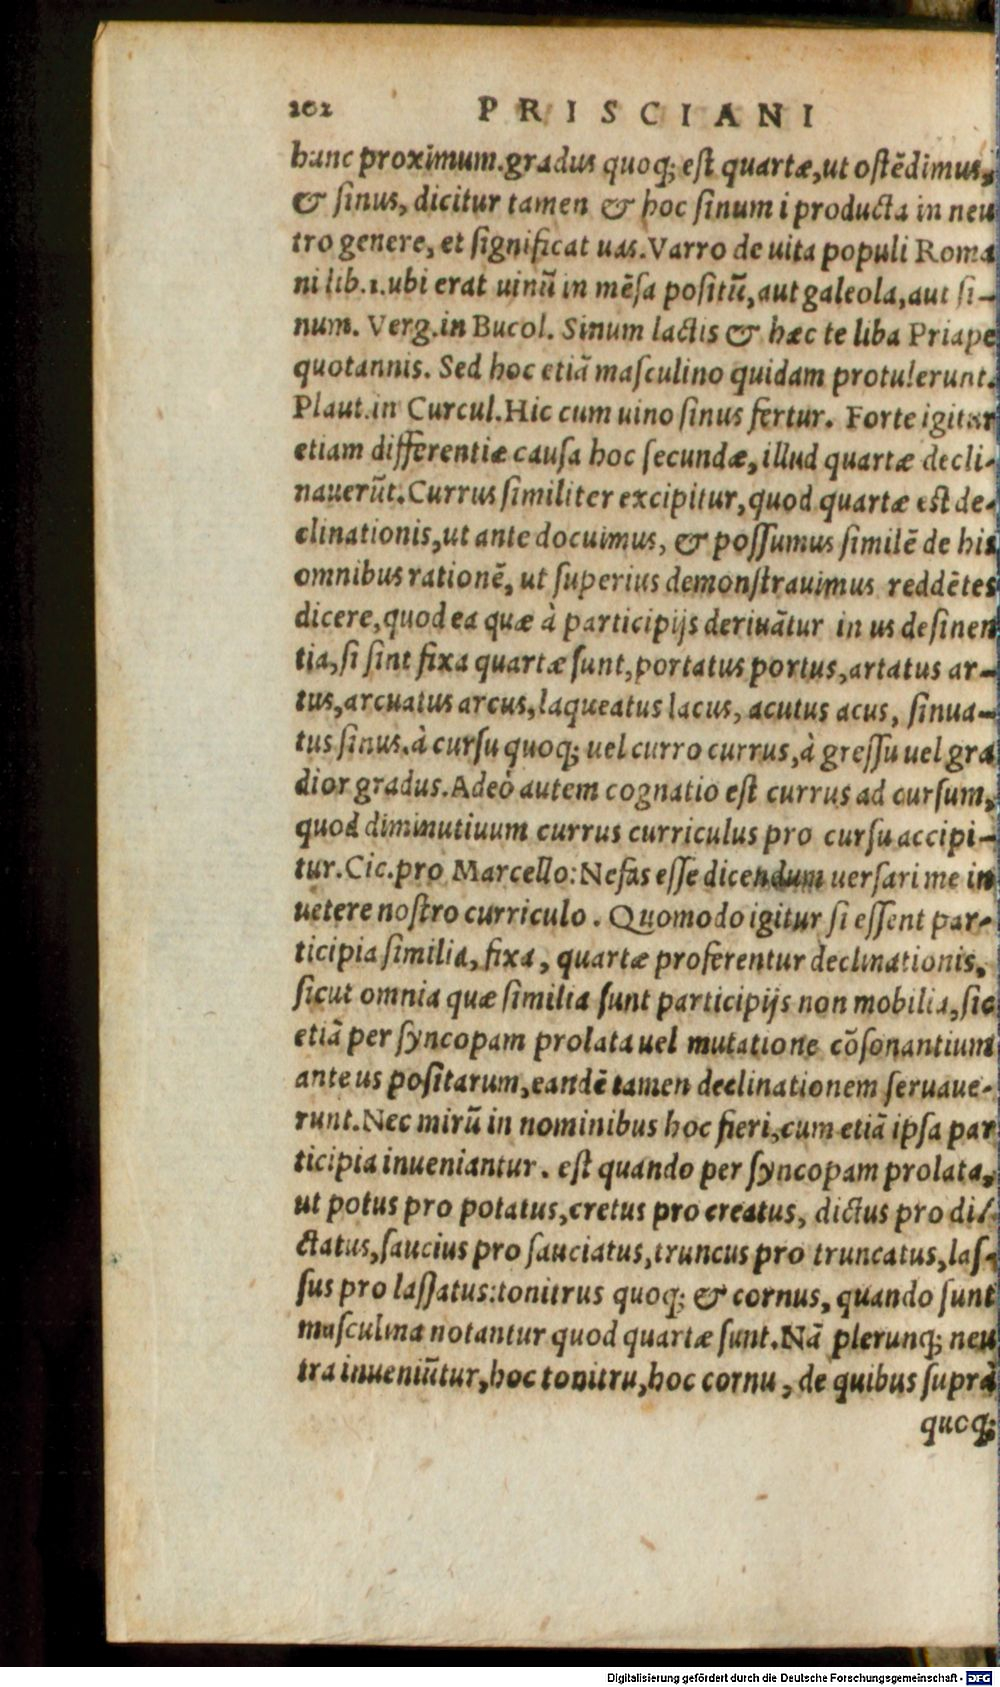 202 PRISCIANI
hanc proximum.gradus quoq; est quartæ,ut ostēdimus,
& sinus, dicitur tamen & hoc sinum i producta in neu
tro genere, et significat uas. Varro de uita populi Roma
ni lib.1.ubi erat uinū in mēsa positū, aut galeola, aut si-
num. Verg.in Bucol. Sinum lactis & hæc te liba Priape
quotannis. Sed hoc etiā masculino quidam protulerunt.
Plaut.in Curcul.Hic cum uino sinus fertur. Forte igitur
etiam differentiæ causa hoc secundæ, illud quartæ decli-
nauerūt.Currus similiter excipitur, quod quartæ est de-
clinationis,ut ante docuimus, & possumus similē de his
omnibus rationē, ut superius demonstrauimus reddētes
dicere,quod ea quæ à participijs deriuātur in us desinen
tia,si sint fixa quartæ sunt,portatus portus,artatus ar-
tus,arcuatus arcus,laqueatus lacus, acutus acus, sinua-
tus sinus.à cursu quoq; uel curro currus,à gressu uel gra
dior gradus.Adeò autem cognatio est currus ad cursum,
quod diminutiuum currus curriculus pro cursu accipi-
tur.Cic.pro Marcello: Nefas esse dicendum uersari me in
uetere nostro curriculo. Quomodo igitur si essent par-
ticipia similia, fixa, quartæ proferentur declinationis,
sicut omnia quæ similia sunt participijs non mobilia, sic
etiā per syncopam prolata uel mutatione cōsonantium
ante us positarum,eandē tamen declinationem seruaue-
runt.Nec mirū in nominibus hoc fieri,cum etiā ipsa par
ticipia inueniantur. est quando per syncopam prolata,
ut potus pro potatus,cretus pro creatus, dictus pro di-
ctatus,saucius pro sauciatus,truncus pro truncatus,las-
sus pro lassatus:tonitrus quoq; & cornus, quando sunt
masculina notantur quod quartæ sunt.Nā plerunq; neu
tra inueniūtur,hoc tonitru,hoc cornu, de quibus suprà
quoq;
Digitalisierung gefördert durch die Deutsche Forschungsgemeinschaft - DFG